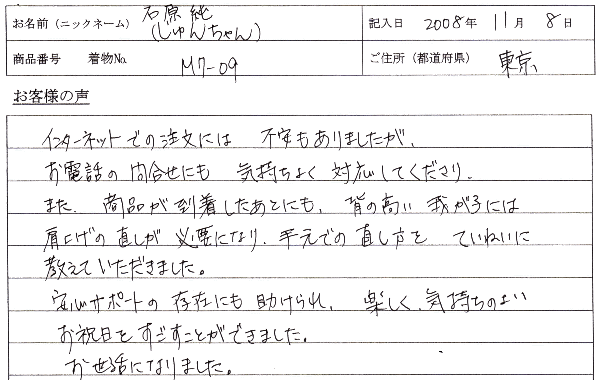 お名前（ニックネーム） 石原 純 (じゅんちゃん) 記入日 2008年 11月 8日
商品番号 着物No. M7-09 ご住所（都道府県） 東京
お客様の声
インターネットでの注文には 不安もありましたが、
お電話の問合せにも 気持ちよく 対応してくださり、
また、商品が到着したあとにも、背の高い 我が子には
肩上げの直しが 必要になり、手元での直し方を ていねいに
教えていただきました。
安心サポートの 存在にも 助けられ、 楽しく、気持ちのよい
お祝日をすごすことができました。
お世話になりました。